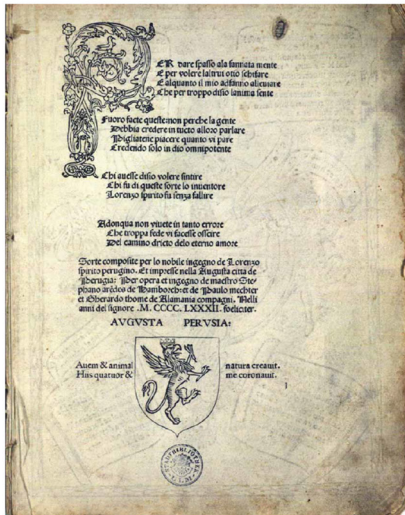 PER dare spasso ala fannata mente
E per volere laltrui otio schifare
E alquanto il mio adfanno alientare
Che per troppo disio lanima sente
Fuoro facte queste non perche la gente
Debbia credere in tucto alloro parlare
Pigliatene piacere quanto vi pare
Credendo solo in dio omnipotente
Chi auesse disio volere sintire
Chi fu di queste sorte lo inuentore
Lorenzo spirito fu senza fallire
Adonqua non viuete in tanto errore
Che troppa fede vi facesse
Del camino dricto delo eterno amore
Sorte composite per lo nobile ingegno de Lorenzo
spirito perugino. Et impresse nella Augusta citta de
Perugia: Per opera et ingegno de maestro Ste-
phano de Hamborch: et de Paulo mechter
et Gherardo thome de Alamania compagni. Nelli
anni del signore .M. CCCC. LXXXII. foeliciter.
AVGVSTA PERVSIA:
Auem & animal natura creauit.
His quatuor & me coronauit.